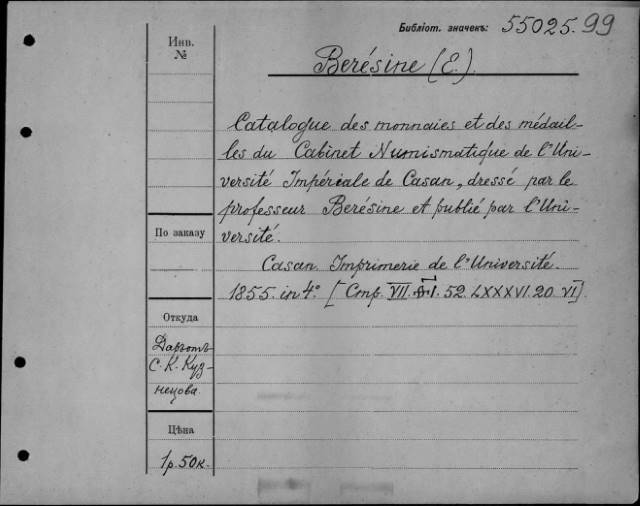 Библіот. значекъ: 55025.99
Инв. №
Berésine (E.)
Catalogue des monnaies et des médail-
les du Cabinet Numismatique de l'Uni-
versité Impériale de Casan, dressé par le
professeur Berésine et publié par l'Uni-
versité.
По заказу
Casan. Imprimerie de l'Université.
1855. in 4° [Conf. VII. 52. LXXXVI. 20. VI]
Откуда
С. К. Куз-
нецова.
Цѣна
1р. 50к.